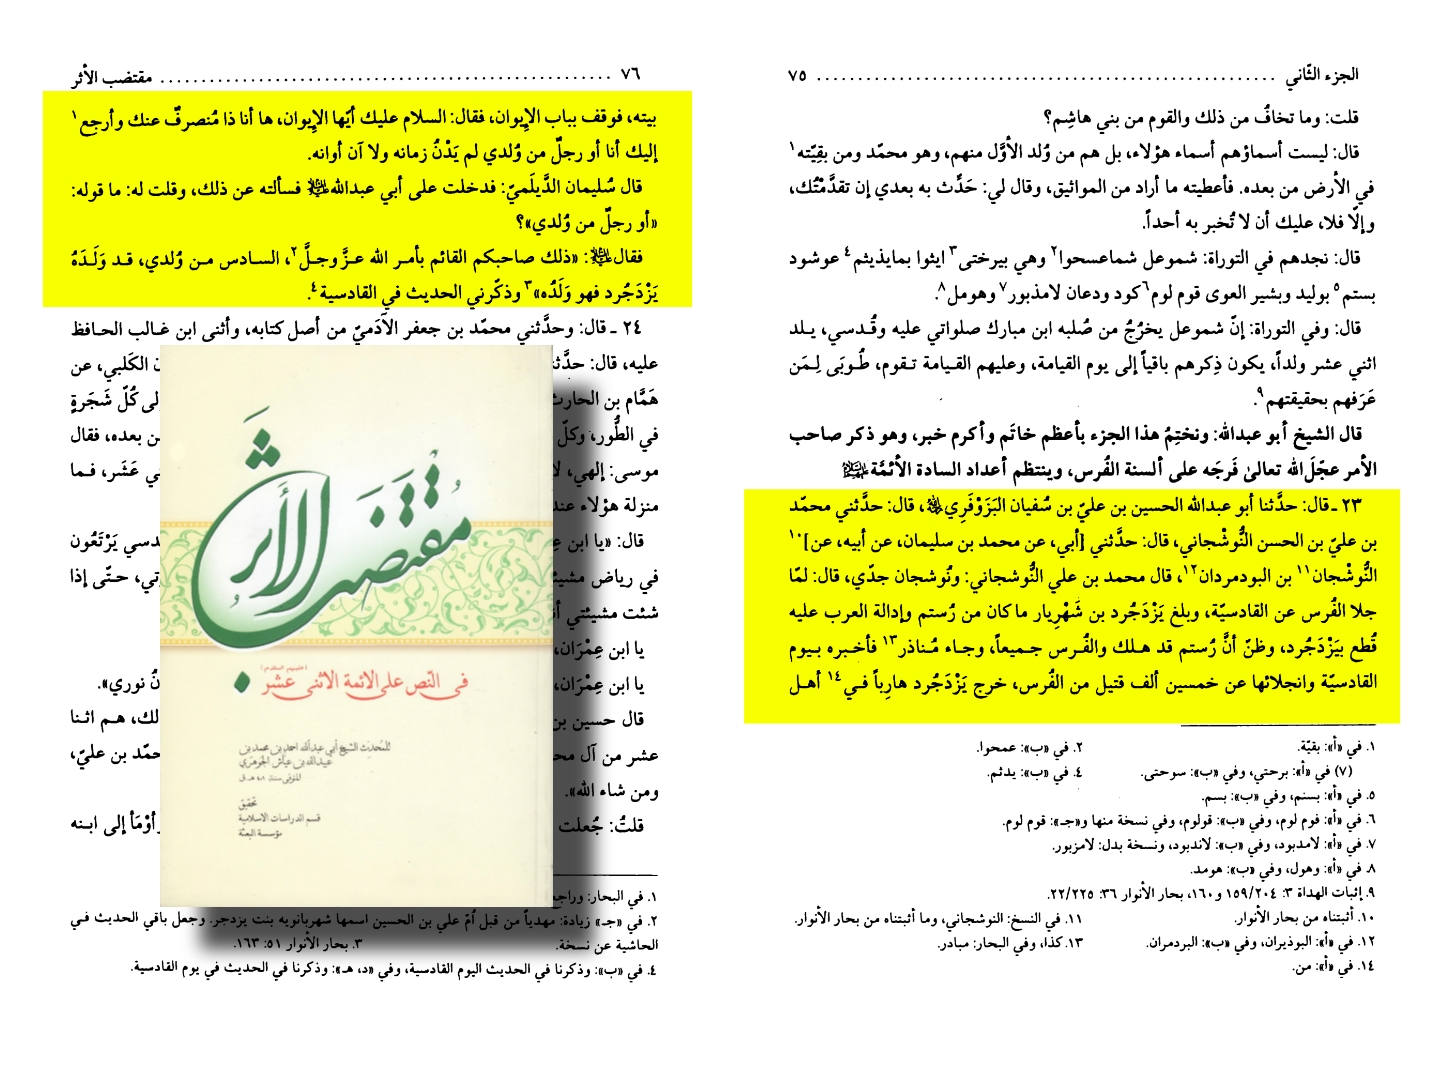 الجزء الثّاني ........ ٧٥
قلت: وما تخافُ من ذلك والقوم من بني هاشِم؟
قال: ليست أسماؤهم أسماء هؤلاء، بل هم من وُلد الأوَّل منهم، وهو محمّد ومن بقِيّته١
في الأرض من بعده. فأعطيته ما أراد من المواثيق، وقال لي: حَدِّث به بعدي إن تقدَّمْتُك،
وإلّا فلا، عليك أن لا تُخبر به أحداً.
قال: نجدهم في التوراة: شموعل شماعسحوا٢ وهي بيرختى٣ ايثوا بمايذيثم٤ عوشود
بستم٥ بوليد وبشير العوى قوم لوم٦ كود ودعان لامذبور٧ وهومل٨.
قال: وفي التوراة: إنّ شموعل يخرُجُ من صُلبه ابن مبارك صلواتي عليه وقُدسي، يلد
اثني عشر ولداً، يكون ذِكرهم باقياً إلى يوم القيامة، وعليهم القيامة تقوم، طُوبَى لِمَن
عَرَفهم بحقيقتهم٩.
قال الشيخ أبو عبدالله: ونختِمُ هذا الجزء بأعظم خاتَم وأكرم خبر، وهو ذكر صاحب
الأمر عجّل‌الله تعالىٰ فَرجَه على ألسنة الفُرس، وينتظم أعداد السادة الأئمّة
٢٣ ـ قال: حدَّثنا أبو عبدالله الحسين بن عليّ بن سُفيان البَزَوْفَرِي، قال: حدَّثني محمّد
بن عليّ بن الحسن النُّوشْجاني، قال: حدَّثني [أبي، عن محمد بن سليمان، عن أبيه، عن]١٠
النُّوشْجان١١ بن البودمردان١٢، قال محمد بن علي النُّوشجاني: ونُوشجان جدّي، قال: لمّا
جلا الفُرس عن القادسيّة، وبلغ يَزْدَجُرد بن شَهْرِيار ما كان من رُستم وإدالة العرب عليه
قُطع بيَزْدَجُرد، وظنّ أنَّ رُستم قد هلك والفُرس جميعاً، وجاء مُناذر١٣ فأخبره بيوم
القادسيّة وانجلائها عن خمسين ألف قتيل من الفُرس، خرج يَزْدَجُرد هارباً في١٤ أهل
١. في «أ»: بقيّة.
٢. في «ب»: عمحوا.
(٧) في «أ»: برحتي، وفي «ب»: سوحتى.
٤. في «ب»: يدثم.
٥. في «أ»: بسنم، وفي «ب»: بسم.
٦. في «أ»: فوم لوم، وفي «ب»: قولوم، وفي نسخة منها و«جـ»: قوم لوم.
٧. في «أ»: لامدبود، وفي «ب»: لاندبود، ونسخة بدل: لامزبور.
٨. في «أ»: وهول، وفي «ب»: هومد.
٩. إثبات الهداة ٣: ١٥٩/٢٠٤ و١٦٠، بحار الأنوار ٣٦: ٢٢/٢٢٥.
١٠. أثبتناه من بحار الأنوار.
١١. في النسخ: النوشجاني، وما أثبتناه من بحار الأنوار.
١٢. في «أ»: البوذيران، وفي «ب»: البردمران.
١٣. كذا، وفي البحار: مبادر.
١٤. في «أ»: من.
٧٦ ........ مقتضب الأثر
بيته، فوقف بباب الإيوان، فقال: السلام عليك أيّها الإيوان، ها أنا ذا مُنصرفٌ عنك وأرجع١
إليك أنا أو رجلٌ من وُلدي لم يَدْنُ زمانه ولا آن أوانه.
قال سُليمان الدَّيلَميّ: فدخلت على أبي عبدالله فسألته عن ذلك، وقلت له: ما قوله:
«أو رجلٌ من وُلدي»؟
فقال: «ذلك صاحبكم القائم بأمر الله عزَّ وجلَّ٢، السادس من وُلدي، قد وَلَدَهُ
يَزْدَجُرد فهو وَلَدُه»٣ وذكّرني الحديث في القادسية٤.
٢٤ ـ قال: وحدَّثني محمّد بن جعفر الآدَميّ من أصل كتابه، وأثنى ابن غالب الحافظ
عليه، قال: حدَّثنا
ن الكَلبي، عن
هَمَّام بن الحارث
لى كُلّ شَجَرةٍ
في الطُّور، وكلّ
ن بعده، فقال
موسى: إلهي، لا
ي عَشَر، فما
منزلة هؤلاء عند
قال: «يا ابن
دسي يَرْتَعُون
في رياض
تي، حتّى إذا
شئت مشيئتي
يا ابن عِمْرَان،
يا ابن عِمْرَان،
نُ نوري».
قال حسين بن
لك، هم اثنا
عشر من آل
حمّد بن عليّ،
ومن شاء الله».
قلتُ: جُعلت
أوْمَأ إلى ابنه
مُقتَضَبُ الأَثَر
في النّص على الائمة الاثنى عشر
(عليهم السلام)
للمُحدث الشيخ أبي عبدالله احمد بن محمد بن
عبيدالله بن عياش الجوهري
المتوفى سنة ٤٠١ هـ.ق
تحقيق
قسم الدراسات الاسلامية
مؤسسة البعثة
١. في البحار:
٢. في «جـ» زيادة: مهدياً من قبل أمّ علي بن الحسين اسمها شهربانويه بنت يزدجر. وجعل باقي الحديث في
الحاشية عن نسخة.
٣. بحار الأنوار ٥١: ١٦٣.
٤. في «ب»: وذكرنا في الحديث اليوم القادسية، وفي «د، هـ»: وذكرنا في الحديث في يوم القادسية.